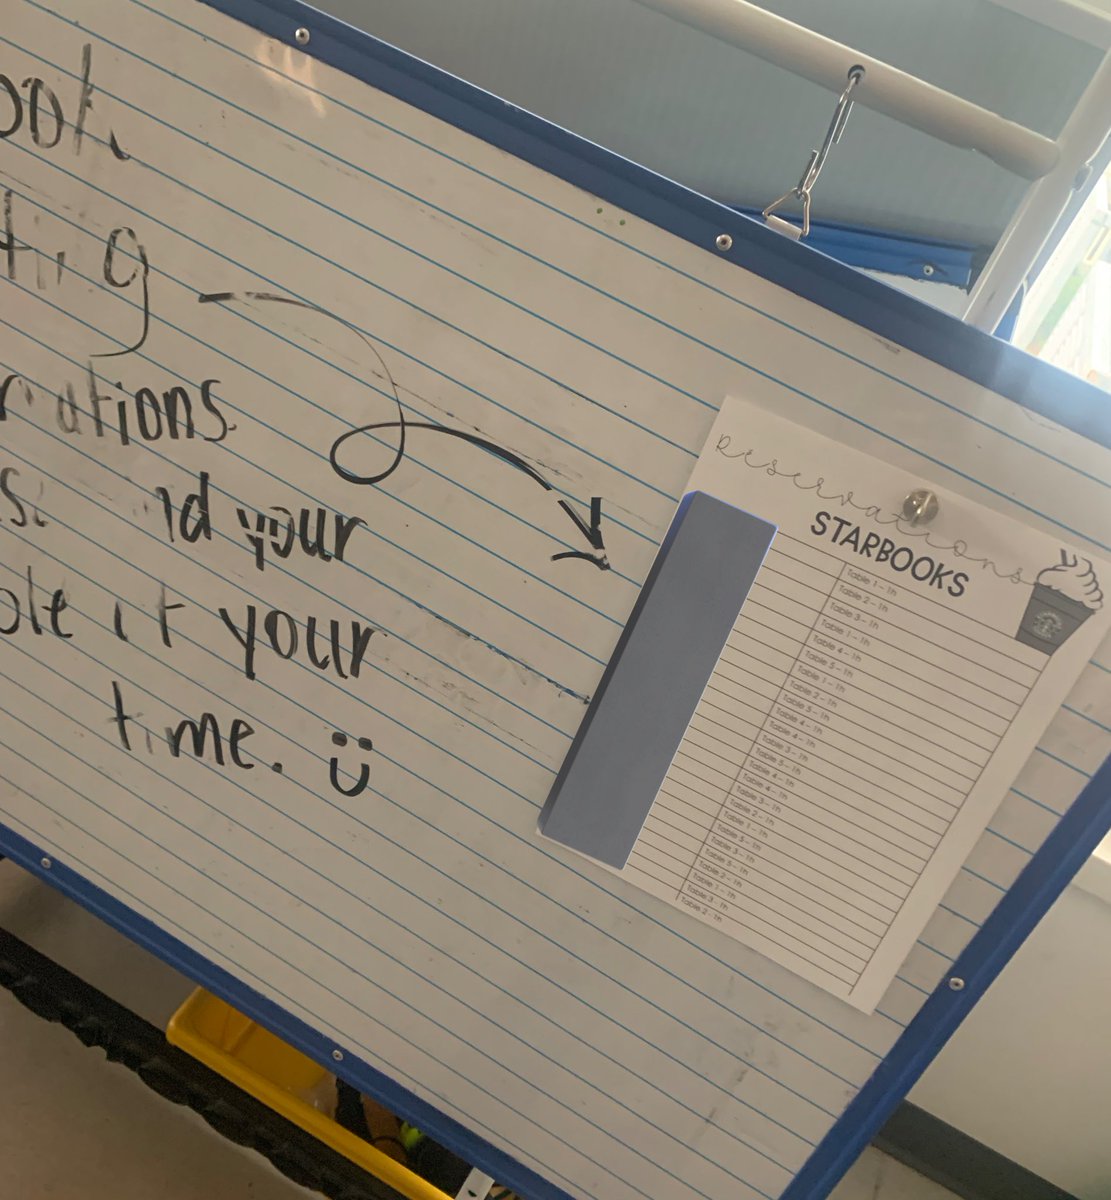 ook
ations.
your
your
time.
Reservations
STARBOOKS
Table 1 - 1h
Table 2 - 1h
Table 3 - 1h
Table 1 - 1h
Table 4 - 1h
Table 5 - 1h
Table 1 - 1h
Table 2 - 1h
Table 5 - 1h
Table 4 - 1h
Table 4 - 1h
Table 3 - 1h
Table 5 - 1h
Table 4 - 1h
Table 4 - 1h
Table 3 - 1h
Table 2 - 1h
Table 1 - 1h
Table 5 - 1h
Table 3 - 1h
Table 5 - 1h
Table 2 - 1h
Table 1 - 1h
Table 3 - 1h
Table 2 - 1h